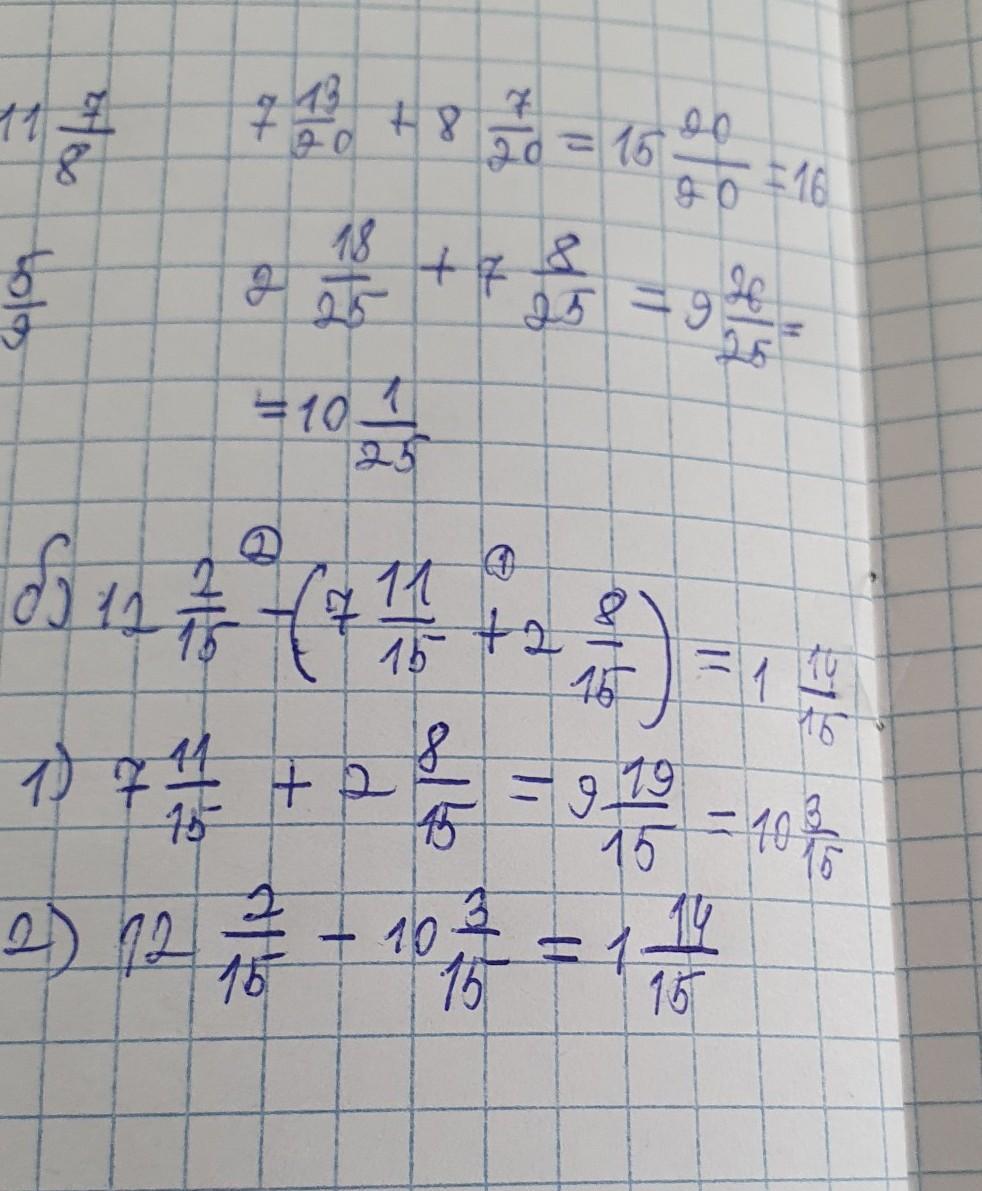 11 7/8    7 13/20 + 8 7/20 = 15 20/20 = 16
5/9    2 18/25 + 7 8/25 = 9 26/25 =
= 10 1/25
② ①
б) 12 2/15 - (7 11/15 + 2 8/15) = 1 14/15
1) 7 11/15 + 2 8/15 = 9 19/15 = 10 3/15
2) 12 2/15 - 10 3/15 = 1 14/15